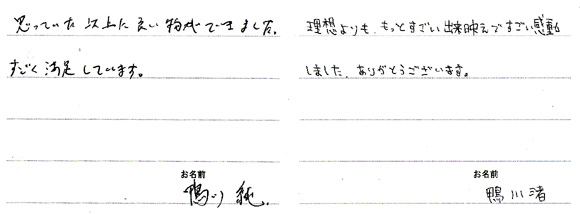 思っていた以上に良い物ができました。
すごく満足しています。
お名前
鴨川 純.
理想よりも、もっとすごい出来映えですごい感動
しました。ありがとうございます。
お名前
鴨川渚